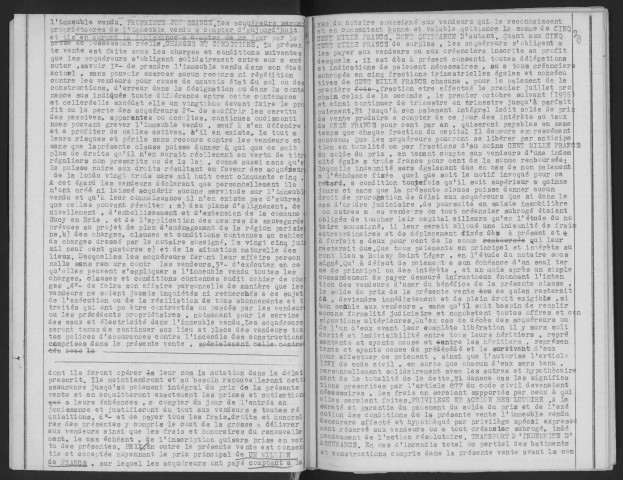 l'immeuble vendu. PROPRIETE JOUISSANCE. Les acquéreurs seront
propriétaires de l'immeuble vendu à compter d'aujourd'hui
et ils en auront la jouissance à compter de ce jour par la
prise de possession réelle. CHARGES ET CONDITIONS. La présen
te vente est faite sous les charges et conditions suivantes
que les acquéreurs s'obligent solidairement entre eux à exé
cuter, savoir I°- de prendre l'immeuble vendu dans son état
actuel, sans pouvoir exercer aucun recours ni répétition
contre les vendeurs pour cause de mauvais état du sol ou des
constructions, d'erreur dans la désignation ou dans la conte
nance sus indiquée toute différence entre cette contenance
et celle réelle excédât elle un vingtième devant faire le pro
fit ou la perte des acquéreurs 2°- de souffrir les servitu
des passives, apparentes ou occultes, continues ou discontinues
pouvant grever l'immeuble vendu, sauf à s'en défendre
et à profiter de celles actives, s'il en existe, le tout à
leurs risques et périls sans recours contre les vendeurs et
sans que la présente clause puisse donner à qui que ce soit
plus de droits qu'il n'en aurait réellement en vertu de titres
réguliers non prescrits ou de la loi, comme aussi sans qu'elle
puisse nuire aux droits résultant en faveur des acquéreurs
de la loi du vingt trois mars mil huit cent cinquante cinq.
A cet égard les vendeurs déclarent que personnellement ils
n'ont créé ni laissé acquérir aucune servitude sur l'immeuble
vendu et qu'à leur connaissance il n'en existe pas d'autres
que celles pouvant résulter: a) des plans d'alignement, de
nivellement, d'embellissement et d'extension de la commune de
Bucy en Brie, et de l'application des mesures de sauvegarde
prévues au projet de plan d'aménagement de la région parisien
ne, b) des charges, clauses et conditions contenues au cahier
de charges dressé par le notaire soussigné, le vingt cinq juin
mil neuf cent quatorze c) et de la situation naturelle des
lieux. Desquelles les acquéreurs feront leur affaire person
nelle sans recours contre les vendeurs. 3°- d'exécuter en ce
qu'elles peuvent s'appliquer à l'immeuble vendu toutes les
charges, clauses et conditions contenues audit cahier de char
ges 4°- de faire son affaire personnelle de manière que les
vendeurs ne soient jamais inquiétés ni recherchés à ce sujet
de l'exécution ou de la résiliation de tous abonnements et
traités qui ont pu être contractés ou passés par les vendeurs
ou les précédents propriétaires, notamment pour le service
des eaux et électricité dans l'immeuble vendu. Les acquéreurs
seront tenus de continuer aux lieu et place des vendeurs tou
tes polices d'assurances contre l'incendie des constructions
comprises dans la présente vente
dont ils feront opérer à leur nom la mutation dans le délai
prescrit. Ils maintiendront et au besoin renouvelleront cette
assurance jusqu'au paiement intégral du prix de la présente
vente et en acquitteront exactement les primes et cotisations
à leurs échéances, à compter du jour de l'entrée en
jouissance et justifieront du tout aux vendeurs à toutes ré
quisitions, 6°- et de payer tous les frais, droits et honorai
res des présentes y compris le coût de la grosse à délivrer
aux vendeurs ainsi que les frais et honoraires de renouvelle
ment, le cas échéant, de l'inscription qui sera prise en ver
tu des présentes. PRIX. En outre la présente vente est consen
tie et acceptée moyennant le prix principal de UN MILLION
de FRANCS, sur lequel les acquéreurs ont payé comptant à la
vue du notaire soussigné aux vendeurs qui le reconnaissent
et en consentent bonne et valable quittance la somme de CINQ
CENT MILLE FRANCS. DONT QUITTANCE D'autant. Quant aux CINQ
CENT MILLE FRANCS de surplus, les acquéreurs s'obligent à
les payer aux vendeurs ou aux créanciers inscrits au profit
desquels il est dès à présent consenti toutes délégations
et indications de paiement nécessaires, ou à tous créanciers
subrogés en cinq fractions trimestrielles égales et conséc
tives de CENT MILLE FRANCS chacune, pour le paiement de la
première fraction être effectué le premier juillet pro
chain celui de la seconde, le premier octobre suivant (1955
et ainsi continuer de trimestre en trimestre jusqu'à parfait
paiement. 2° jusqu'à son paiement intégral ledit solde du prix
de vente produira à compter de ce jour des intérêts au taux
de CENT FRANCS pour cent par an, qui seront payables en même
temps que chaque fraction du capital Il demeure expressément
convenu que les acquéreurs pourront se libérer par anticipa
tion en totalité ou par fractions d'au moins CENT MILLE FRANCS
du solde du prix, en tenant compte aux vendeurs d'une indem
nité égale à trois francs pour cent de la somme remboursée,
laquelle indemnité sera également due en cas de non paiement
à l'échéance fixée, quel que soit le motif invoqué pour ce
retard, à condition toutefois qu'il soit supérieur à quinze
jours et sans que la présente clause puisse donner aucun
droit de prorogation de délai aux acquéreurs que si dans le
cas d'ordre judiciaire, de poursuite en saisie immobilière
ou autres à sa vendeurs ou tout créancier subrogé étaient
obligés de toucher leur capital ailleurs qu'en l'étude du no
taire soussigné, il leur serait alloué une indemnité de frais
extraordinaires et de déplacement fixée dès à présent et
à forfait à deux pour cent de la somme qui leur
resterait due. Que tous paiements en principal et intérêts au
ront lieu à Boissy Saint Léger, en l'étude du notaire sous
signé. Qu'à défaut de paiement à son échéance d'un seul ter
me de principal ou des intérêts, et un mois après un simple
commandement de payer demeuré infructueux énonçant l'inten
tion des vendeurs d'user du bénéfice de la présente clause,
le solde du prix de la présente vente ou ce qui en resterait
dû, deviendra immédiatement et de plein droit exigible si
bon semble aux vendeurs, sans qu'il soit besoin de remplir
aucune formalité judiciaire et nonobstant toutes offres et con
signations ultérieures. Qu'en cas de décès des acquéreurs ou
de l'un d'eux avant leur complète libération il y aura soli
darité et indivisibilité entre tous leurs héritiers, repré
sentants et ayants cause et entre les héritiers, représen
tants et ayants cause du prédécédé et le survivant d'eux
pour effectuer ce paiement, ainsi que l'autorise l'article
1221 du code civil, en sorte que chacun d'eux sera tenu,
personnellement solidairement avec les autres et hypothécaire
ment de la totalité de la dette. Si dans ce cas les significa
tions prescrites par l'article 877 du code civil devenaient
nécessaires, les frais en seraient supportés par ceux à qui
elles seraient faites. PRIVILEGE ET ACTION RESOLUTOIRE. A la
sûreté et garantie du paiement du solde du prix et de l'exé
cution des conditions de la présente vente l'immeuble vendu
demeurera affecté et hypothéqué par privilège spécial expressé
ment réservé aux vendeurs ou à tout créancier subrogé, indé
pendamment de l'action résolutoire. TRANSPORT D'INDEMNITE D'
ASSURANCE. En cas d'incendie total ou partiel des bâtiments
et constructions compris dans la présente vente avant la com